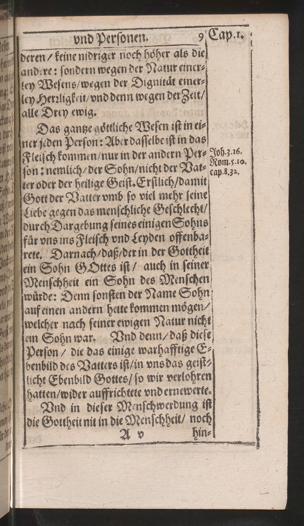 vnd Personen. 9 Cap.1.
deren/ keine nidriger noch höher als die
andere: sondern wegen der Natur einer-
ley Wesens/ wegen der Dignitåt einer-
ley Herzligkeit/ vnd denn wegen der Zeit/
alle Drey ewig.
Das gantze göttliche Wesen ist in ei-
ner jeden Person: Aber dasselbe ist in das
Fleisch kommen/ nur in der andern Per-
son: nemlich/ der Sohn/ nicht der Vat-
ter oder der heilige Geist. Erstlich/ damit
Gott der Vatter vmb so viel mehr seine
Liebe gegen das menschliche Geschlecht/
durch Dargebung seines einigen Sohns
für vns ins Fleisch vnd Leyden offenba-
rete. Darnach/ daß/ der in der Gottheit
ein Sohn GOttes ist/ auch in seiner
Menschheit ein Sohn des Menschen
würde: Denn sonsten der Name Sohn
auf einen andern hette kommen mögen/
welcher nach seiner ewigen Natur nicht
ein Sohn war. Vnd denn/ daß diese
Person/ die das einige warhafftige E-
benbild des Vatters ist/ in vns das geist-
licht Ebenbild Gottes/ so wir verlohren
hatten/ wider auffrichtete vnd ernewerte.
Vnd in dieser Menschwerdung ist
die Gottheit nit in die Menschheit/ noch
A v hin-
Joh.3.16.
Rom.5.10.
cap.8,32.